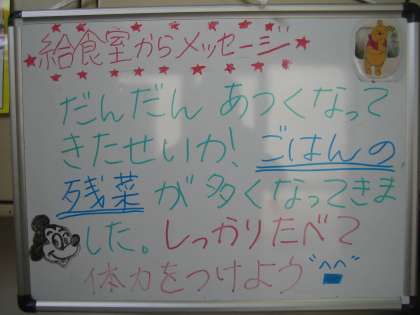 給食室からメッセージ
だんだん あつくなって
きたせいか、ごはんの
残菜が多くなってきま
した。しっかりたべて
体力をつけよう^^